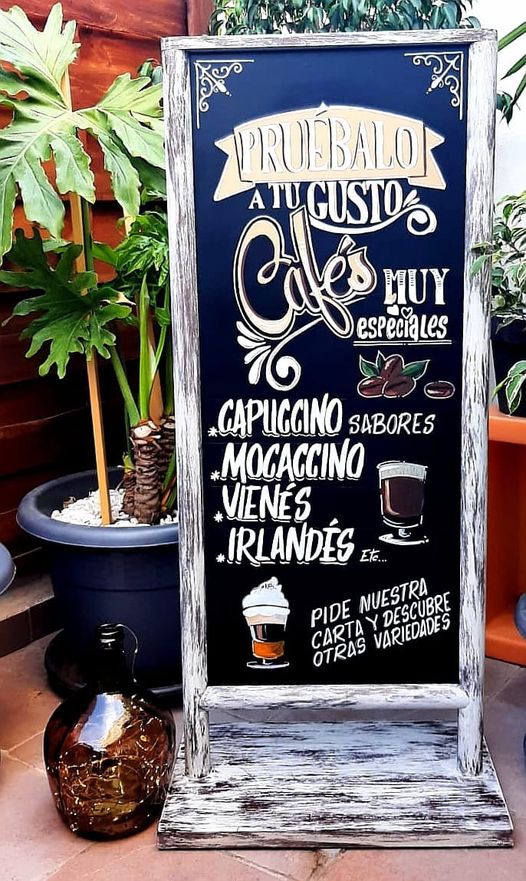 PRUÉBALO
A TU GUSTO
Cafés MUY
especiales
*CAPUCCINO SABORES
*MOCACCINO
*VIENÉS
*IRLANDÉS Etc...
PIDE NUESTRA
CARTA Y DESCUBRE
OTRAS VARIEDADES